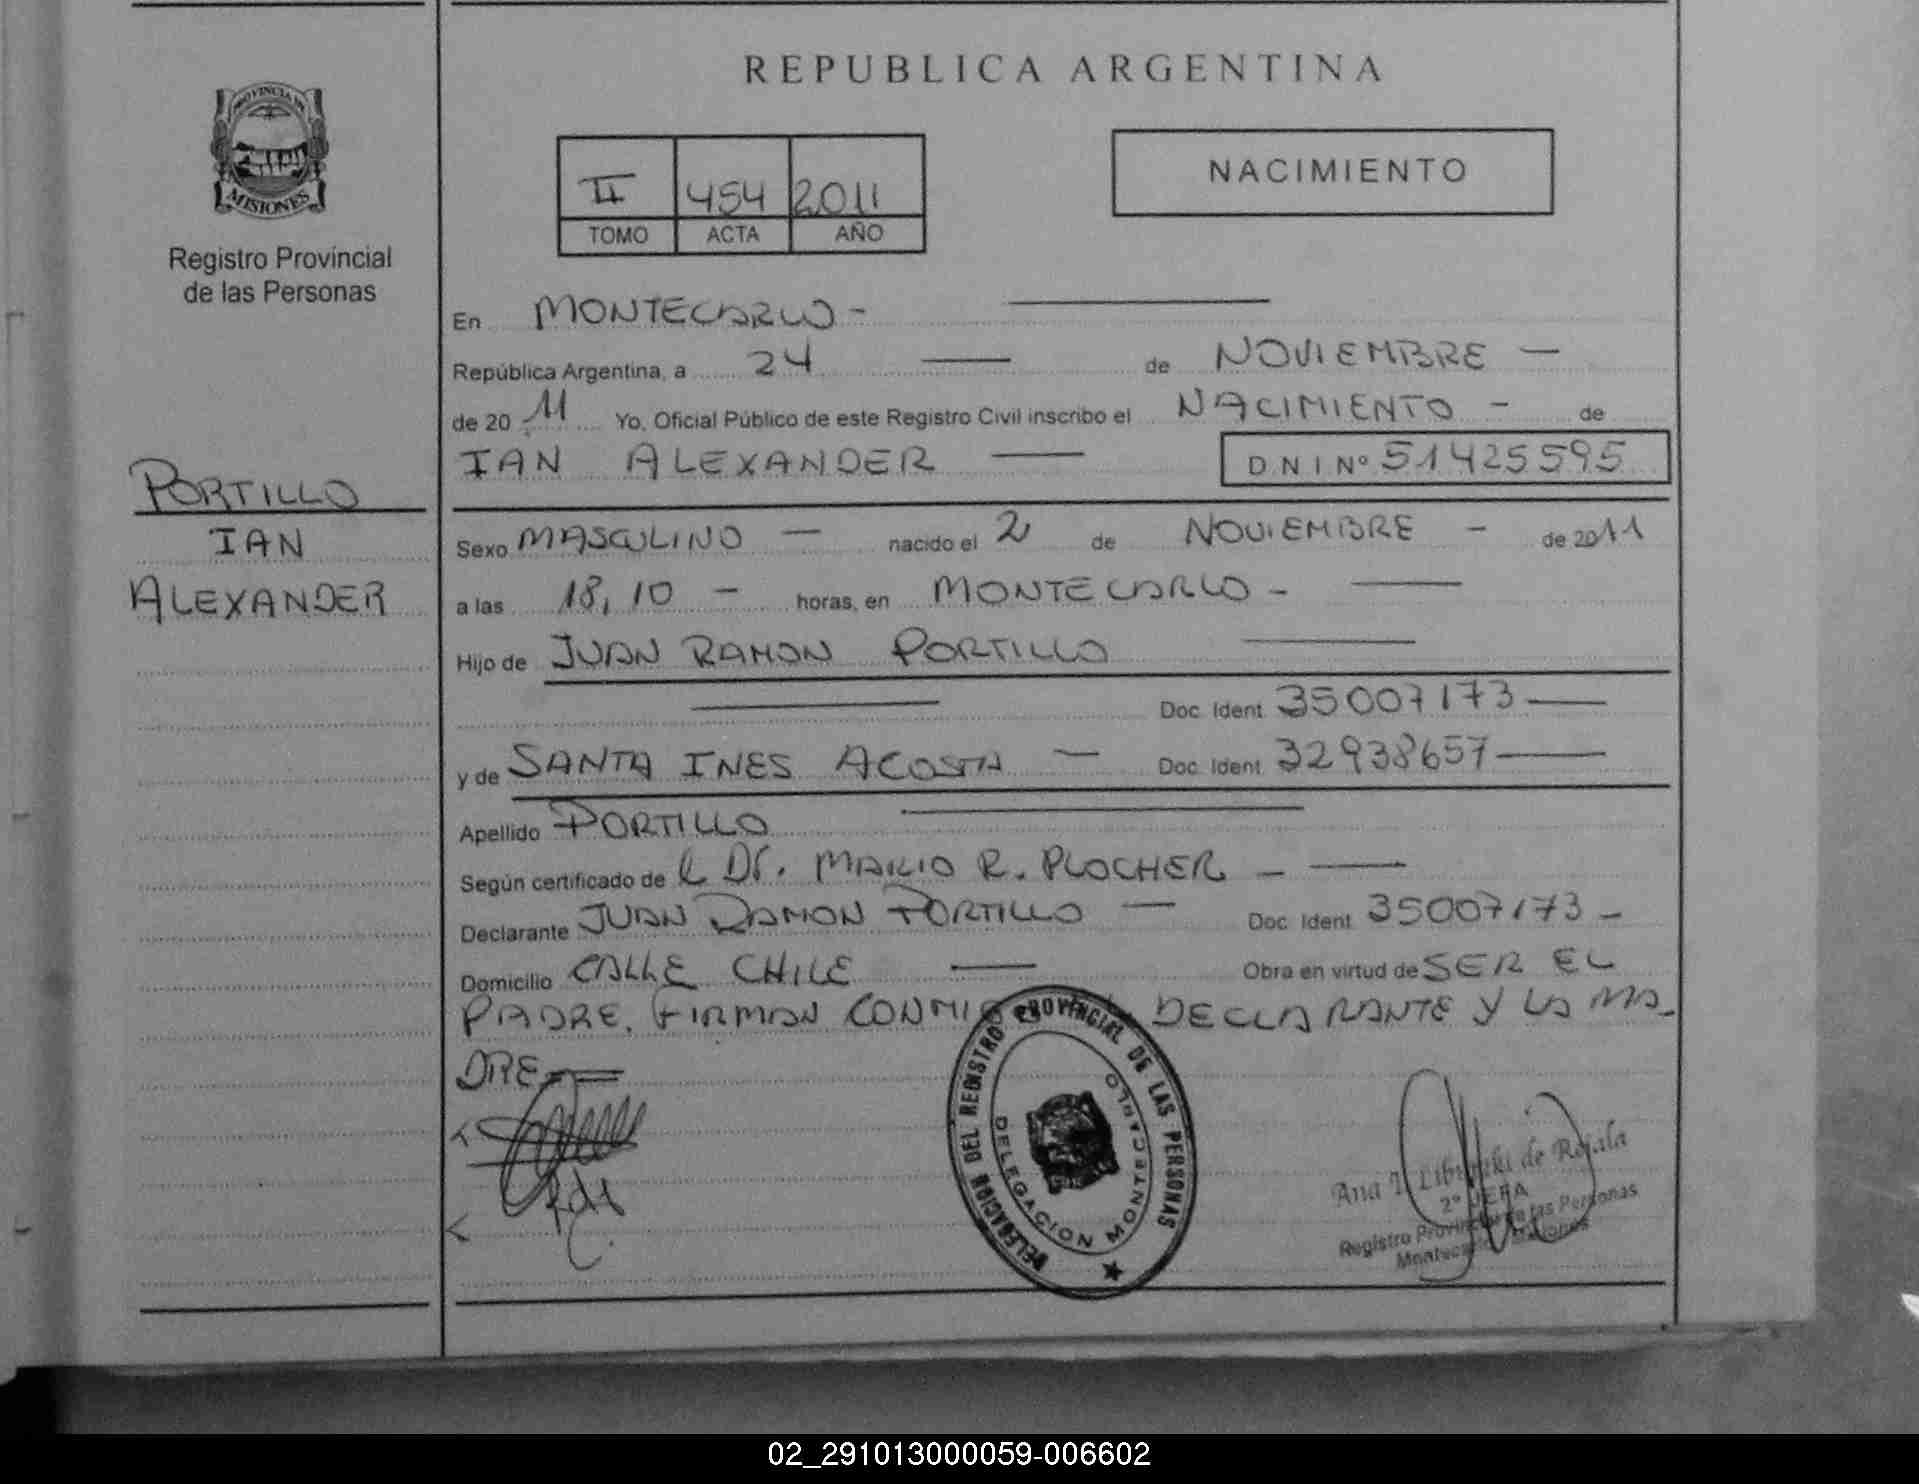 REPUBLICA ARGENTINA
PROVINCIA DE
MISIONES
Registro Provincial
de las Personas
II 454 2011
TOMO ACTA AÑO
NACIMIENTO
En MONTECARLO -
República Argentina, a 24 — de NOVIEMBRE —
de 20 11 Yo, Oficial Público de este Registro Civil inscribo el NACIMIENTO - de
IAN ALEXANDER — D N I Nº 51425595
PORTILLO
IAN
ALEXANDER
Sexo MASCULINO — nacido el 2 de NOVIEMBRE - de 2011
a las 18,10 - horas, en MONTECARLO -
Hijo de JUAN RAMON PORTILLO
Doc. Ident. 35007173
y de SANTA INES ACOSTA — Doc. Ident. 32938657
Apellido PORTILLO
Según certificado de Dr. MARIO R. PLOCHER -
Declarante JUAN RAMON PORTILLO — Doc. Ident. 35007173 -
Domicilio CALLE CHILE — Obra en virtud de SER EL
PADRE. FIRMAN DECLARANTE Y LA MA-
DRE
DELEGACION DEL REGISTRO PROVINCIAL DE LAS PERSONAS
DELEGACION MONTECARLO
Ana de Rojala
2º JEFA
Registro Provincial de las Personas
Montecarlo Misiones
02_291013000059-006602